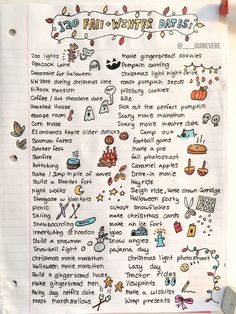 120 FALL + WINTER DATES!
@____GUINEVERE
Zoo lights
Peacock Lane
Decorate for Halloween
NW ZND during christmas time
Pittock Mansion
Coffee / hot chocolate date
Haunted House
escape room
Corn maze
EZ orchards Apple cider donuts
Bauman farms
October fest
Bonfire
Hottubbing
Rake / Jump in pile of leaves
Build a blanket fort
night walks
Stargaze w/ blankets
picnic
Skiing
Snowboarding
innertubing @ hoodoo
Build a snowman
Snowball fight
christmas movie marathon
Halloween movie marathon
Build a gingerbread house
make gingerbread men
Rainy day netflix date
roast marshmallows
make gingerbread cookies
Pumpkin carving
Christmas light night drive
roast pumpkin seeds
pillsbury cookies
bake
Pick out the perfect pumpkin
Scary movie marathon
Scary movie theatre date
Camp out
football game
make a pie
fall photoshoot
Caramel apples
Drive-in movie
Hay ride
Sleigh ride / Horse drawn carriage
Halloween party
cutout snowflakes
make christmas cards
make an ice fort
snow angles
pajama day
christmas light photoshoot
Lazy day
Tractor rides
Viewpoints
make a wishlist
Wrap presents